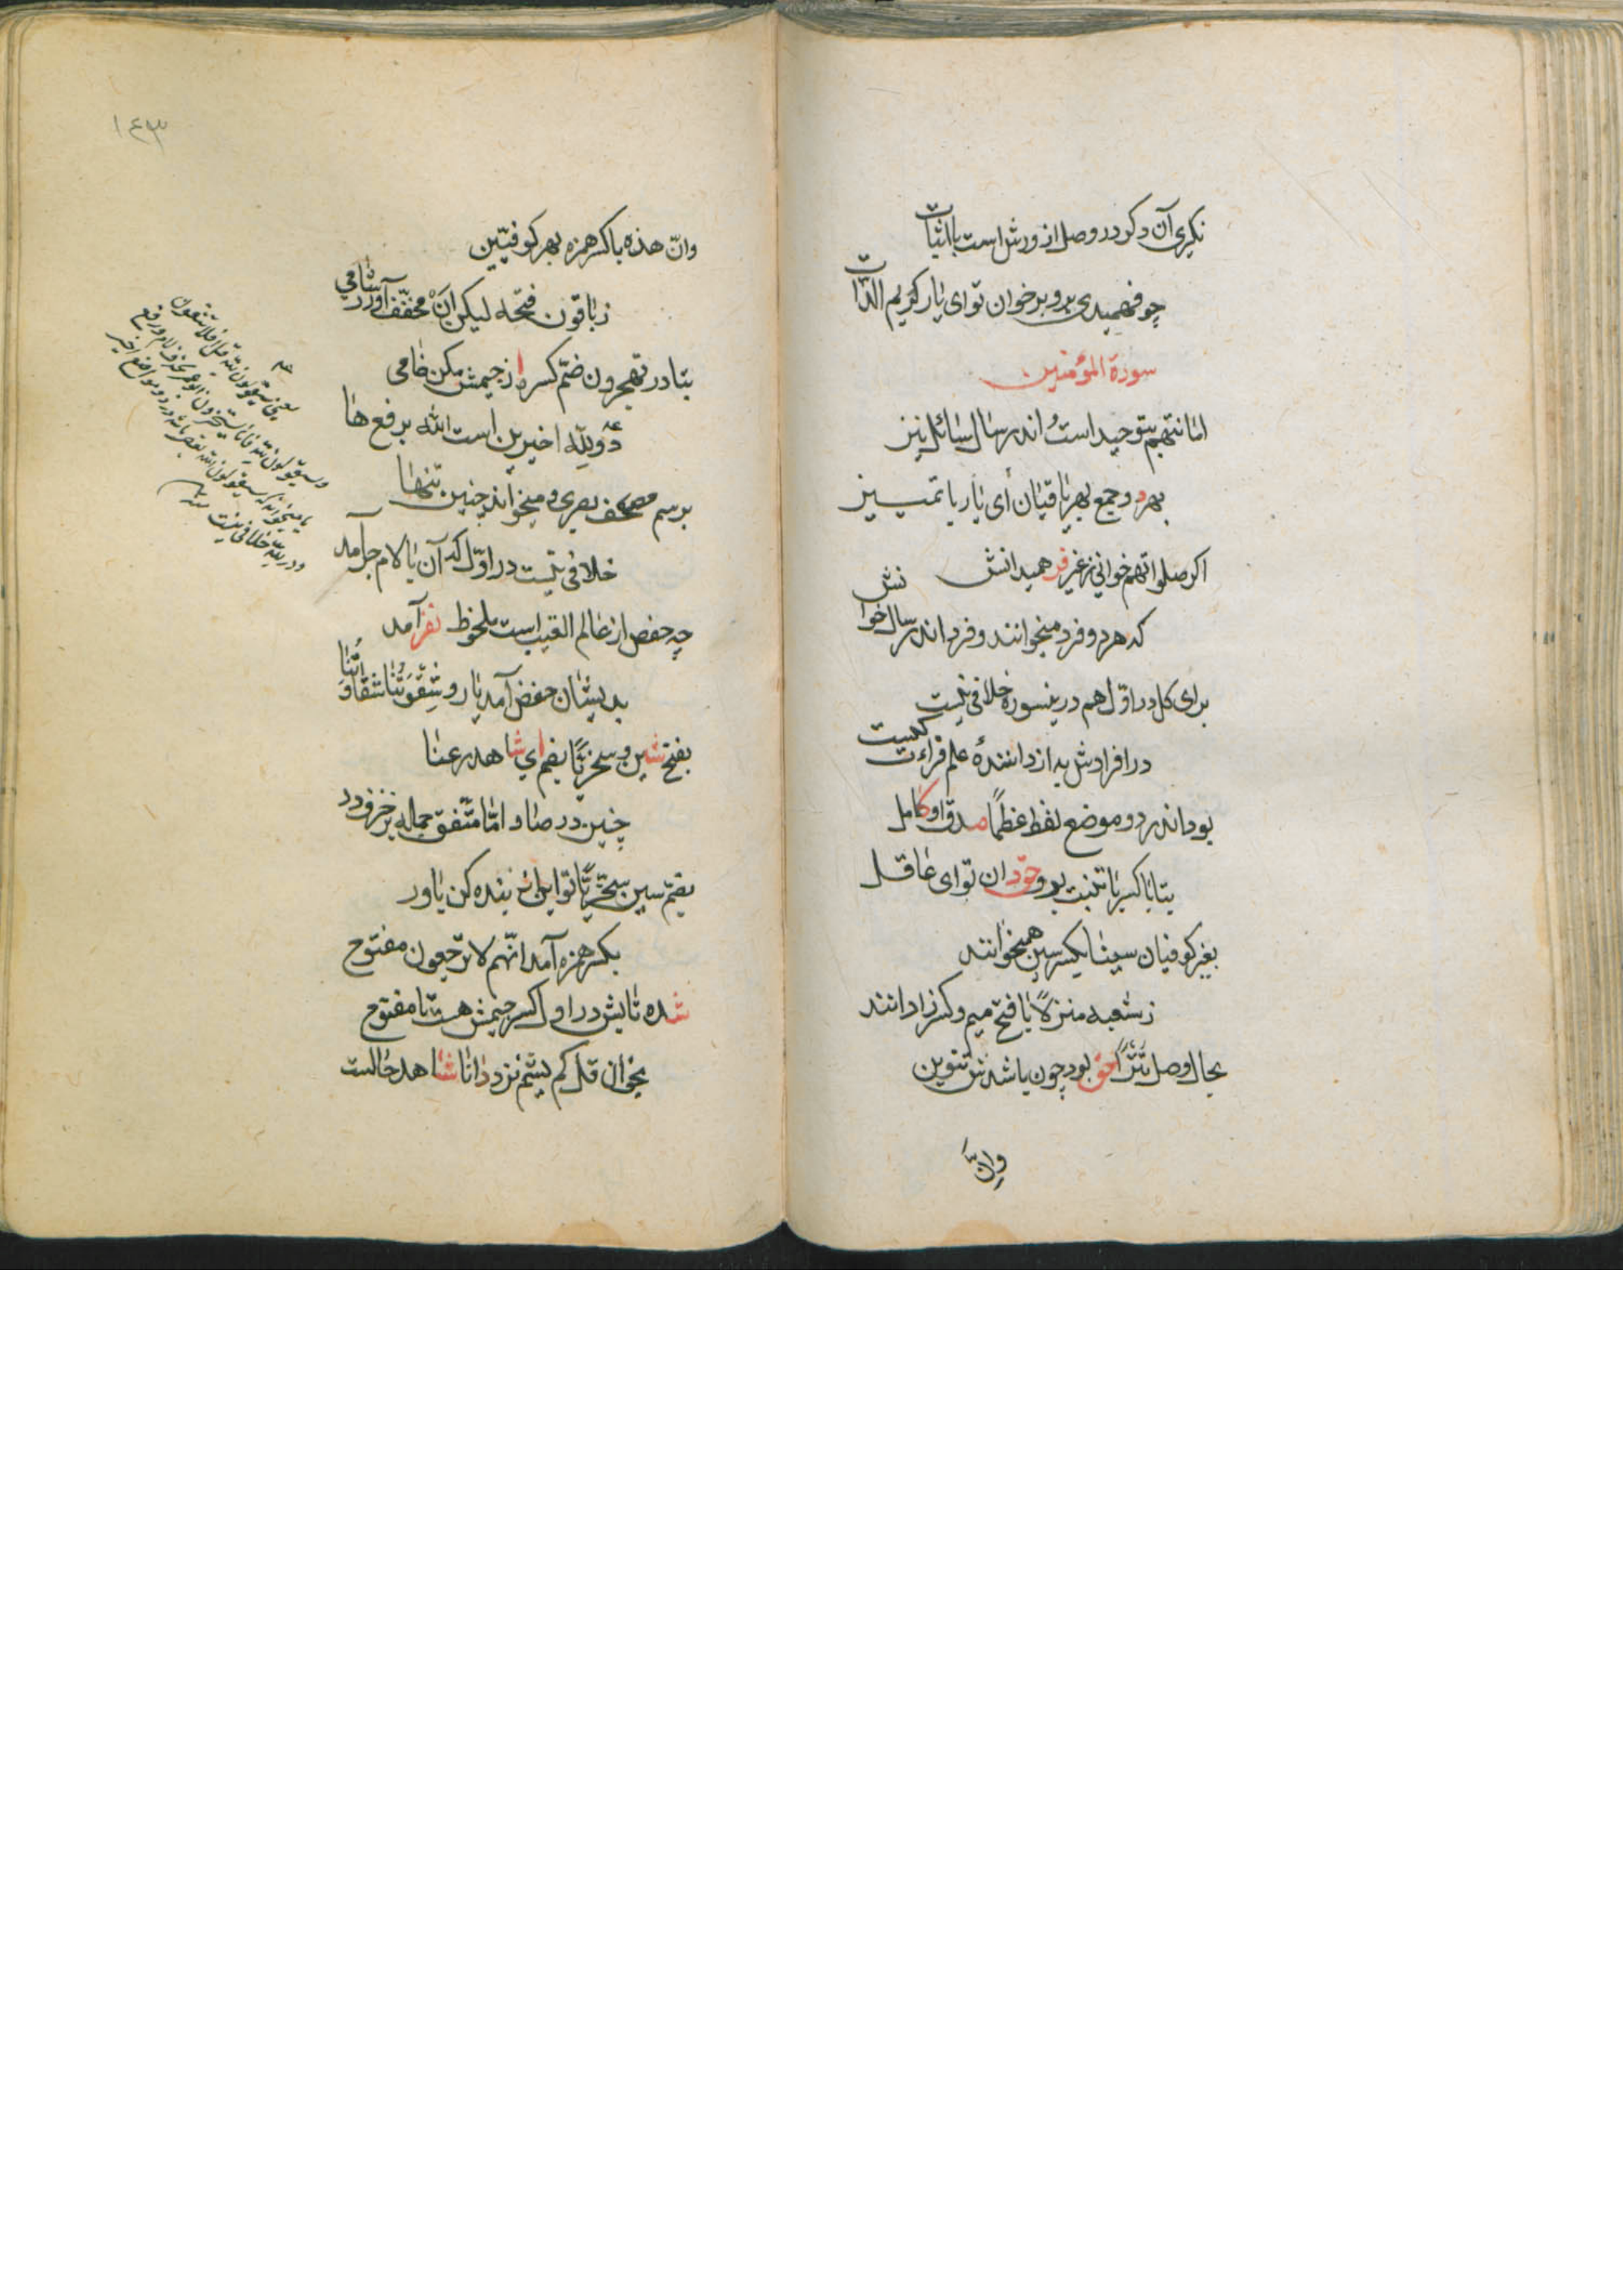 نکیری آن دکر در وصل از ورش است بااثبات
چو فهمیدی برو برخوان تو ای یار کریم الذّات
سورة المؤمنین
اماناتهم بتوحید است اندر سال سائل نیز
بهر دو جمع بهر باقیان ای یار با تمییز
اکر صلواتهم خوانی ز غیر فر همیدانش
که هر دو فرد میخوانند و فرد اندر سال خوانش
برای کل در اوّل هم درینسوره خلافی نیست
در افرادش به از دانندهٔ علم قراءت کیست
بود اندر دو موضع لفظ عظمًا صدق او کامل
بتا با کسر با تنبت برو حقّ دان تو ای عاقل
بغیر کوفیان سینا بکسر سین همیخوانند
ز شعبه منزلًا با فتح میم و کسر زا دانند
بحال وصل تترًا حق بود چون باشدش تنوین
وانّ
١٤٣
وانّ هذه با کسر همزه بهر کوفیّین
ز باقون فتحه لیکن انْ مخفّف آورد شامی
بتا در تهجرون ضمّ کسره از جیمش مکن خامی
دو لِلّه اخیرین است الله برفع ها
برسم مصحف بصری و میخواند چنین تنها
خلافی نیست در اوّل که آن با لام جر آمد
چه حفض از عالم الغیب است ملحوظ نفر آمد
بدیشان حفض آمد یار و شِقْوَتُنا شقاوَتُنا
بفتح شین و سخریًّا بضم ای شاهد رعنا
چنین در صاد امّا متّفق جمله بزخرف در
بضمّ سین سخریًّا تو این از بنده کن باور
بکسر همزه آمد انّهم لا ترجعون مفتوح
شده تایش در او کسر جیمش هست نا مفتوح
بخوان قل کم لبثتم نزد دانا شاهد حالست
یعنی سیقولون لله قل افلا تتقون